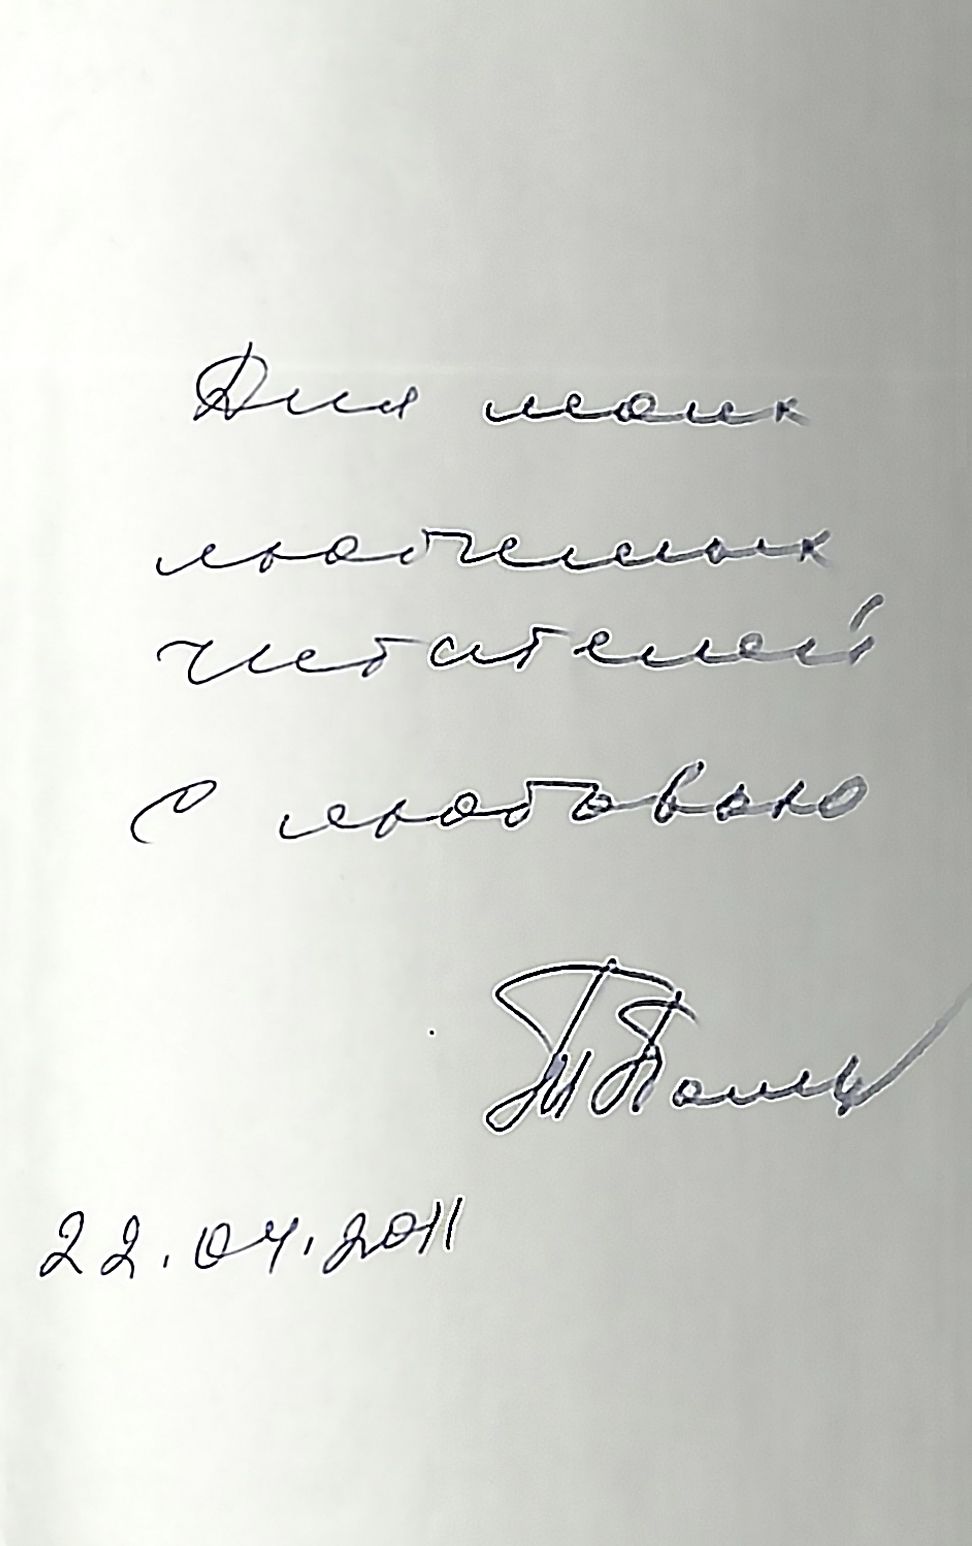 Для моих
любимых
читателей
С любовью
22.04.2011